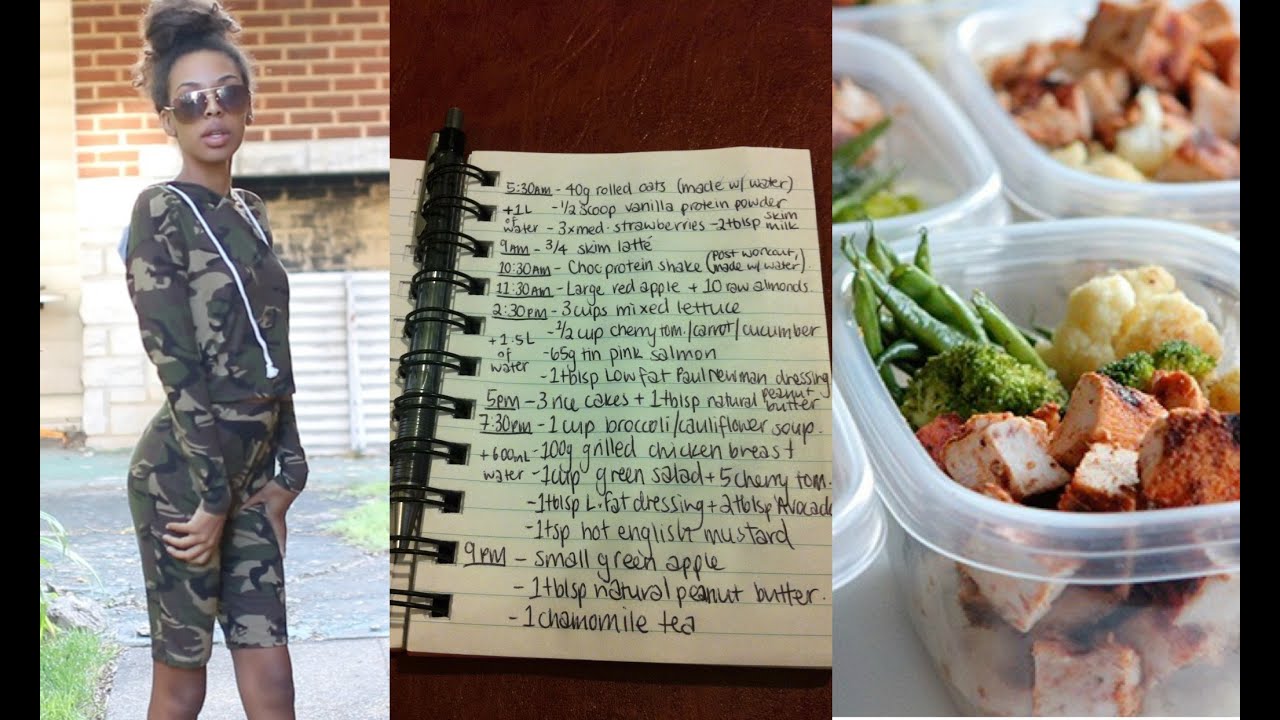 5:30AM - 40g rolled oats (made w/ water)
+1L - 1/2 scoop vanilla protein powder
of water - 3xmed. strawberries - 2tblsp skim milk
9AM - 3/4 skim latté
10:30AM - Choc protein shake (Post workout, made w/ water).
11:30AM - Large red apple + 10 raw almonds.
2:30PM - 3 cups mixed lettuce
- 1/2 cup cherry tom./carrot/cucumber
+1.5L of water - 65g tin pink salmon
- 1tblsp Low fat Paul Newman dressing
5PM - 3 rice cakes + 1tblsp natural peanut butter
7:30PM - 1 cup broccoli/cauliflower soup.
+600mL - 100g grilled chicken breast
water - 1cup green salad + 5 cherry tom.
- 1tblsp L.fat dressing + 2tblsp Avocado
- 1tsp hot english mustard
9PM - small green apple
- 1tblsp natural peanut butter.
- 1 chamomile tea